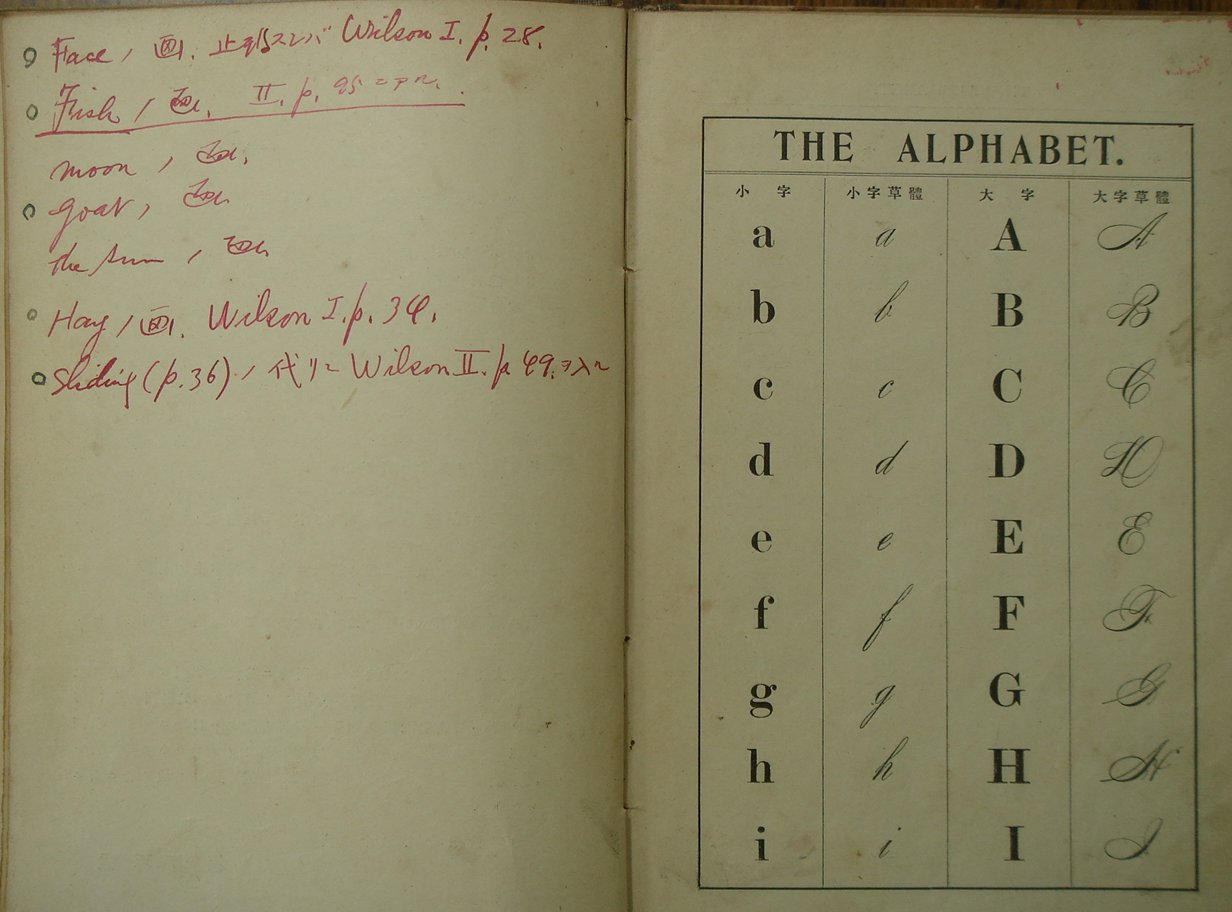 Face ノ 画. Wilson I. p. 28.
Fish ノ 画. II. p. 95 ニアル.
moon ノ 画.
goat ノ 画.
the sun ノ 画.
Hay ノ 画. Wilson I. p. 34.
Sliding (p. 36) ノ 代リニ Wilson II. p. 49. ヲ入ル
THE ALPHABET.
小字 小字草體 大字 大字草體
a a A A
b b B B
c c C C
d d D D
e e E E
f f F F
g g G G
h h H H
i i I I